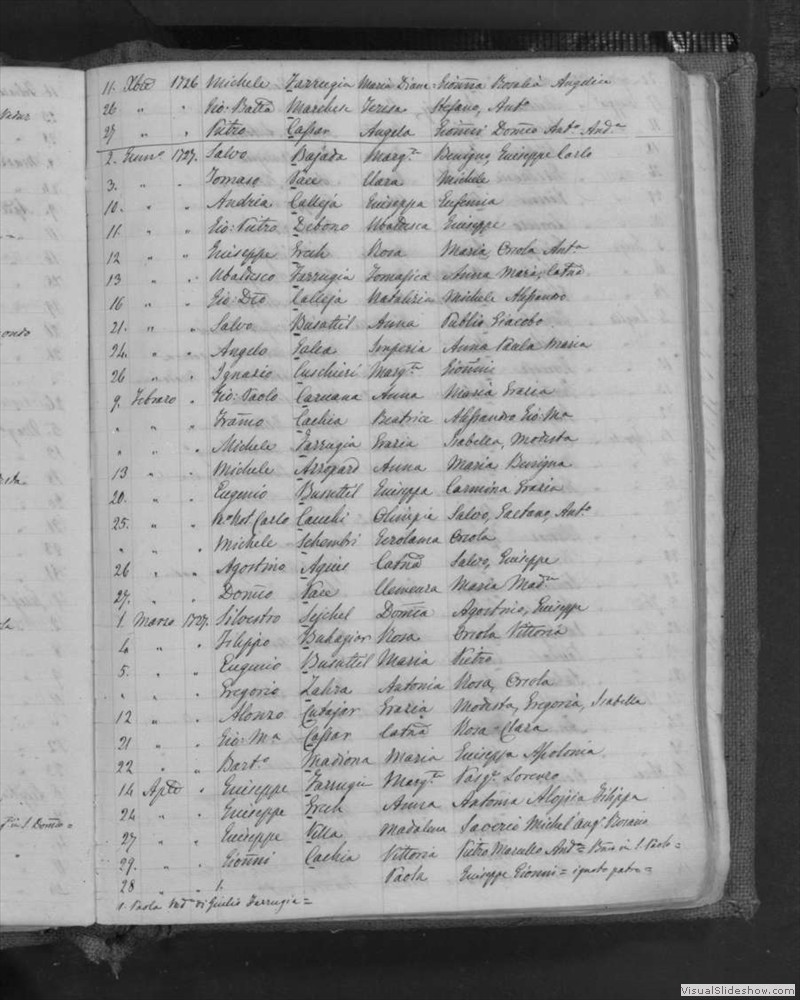 11. Xbre 1726 Michele Farrugia Maria Diana Gionna Rosalia Angelica
26 " " Gio: Batta Teresa Stefano, Anto
27 " " Pietro Cassar Angela Gionni Domco Anto Anda
2. Genno 1727. Salvo Bajada Marga Benigno, Giuseppe Carlo
3. " " Tomaso Pace Clara Michele
10. " " Andria Calleja Giuseppa Eufemia
11. " " Gio: Pietro Debono Ubaldesca Giuseppe
12 " " Giuseppe Grech Rosa Maria, Orsola Anta
13 " " Ubaldesco Farrugia Tomasica Anna Maria, Catna
16 " " Gio: Dco Calleja Natalizia Michele Alessandro
21. " " Salvo Busuttil Anna Publio Giacobo
24. " " Angelo Galea Imperia Anna Paula Maria
26 " " Ignazio Cuschieri Marga Gionni
9. Febraro " Gio: Paolo Caruana Anna Maria Grazia
" " " Cachia Beatrice Alessandro Gio: Ma
" " " Michele Farrugia Grazia Isabella, Modesta
13 " " Michele Anna Maria Benigna
20. " " Eugenio Busuttil Giuseppa Carmina Grazia
25. " " Carlo Olimpia Salvo, Gaetano, Anto
" " " Michele Schembri Gerolama Orsola
26 " " Agostino Agius Catna Salvo, Giuseppe
27. " " Domco Pace Clemenza Maria Mada
1. Marzo 1727. Silvestro Sejchel Domca Agostino, Giuseppe
4 " " Filippo Buhagiar Rosa Orsola Vittoria
5. " " Eugenio Busuttil Maria Pietro
" " " Gregorio Zahra Antonia Rosa, Orsola
12 " " Alonzo Cutajar Grazia Modesta, Gregoria, Isabella
21 " " Gio: Ma Cassar Catna Rosa - Clara
22 " " Barto Madiona Maria Giuseppa Apolonia
14 Aple " Giuseppe Farrugia Marga Pasqe Lorenzo
24 " " Giuseppe Grech Anna Antonia Aloisia Filippa
27 " " Giuseppe Vella Madalena Saverio Michel'ang. Rosario
29. " " Gionni Cachia Vittoria Pietro Marcello And= in S. Paolo=
28 " " 1. Paola Giuseppe Gionni= ignoto patre=
1. Paola di Giulio Farrugia=
VisualSlideshow.com